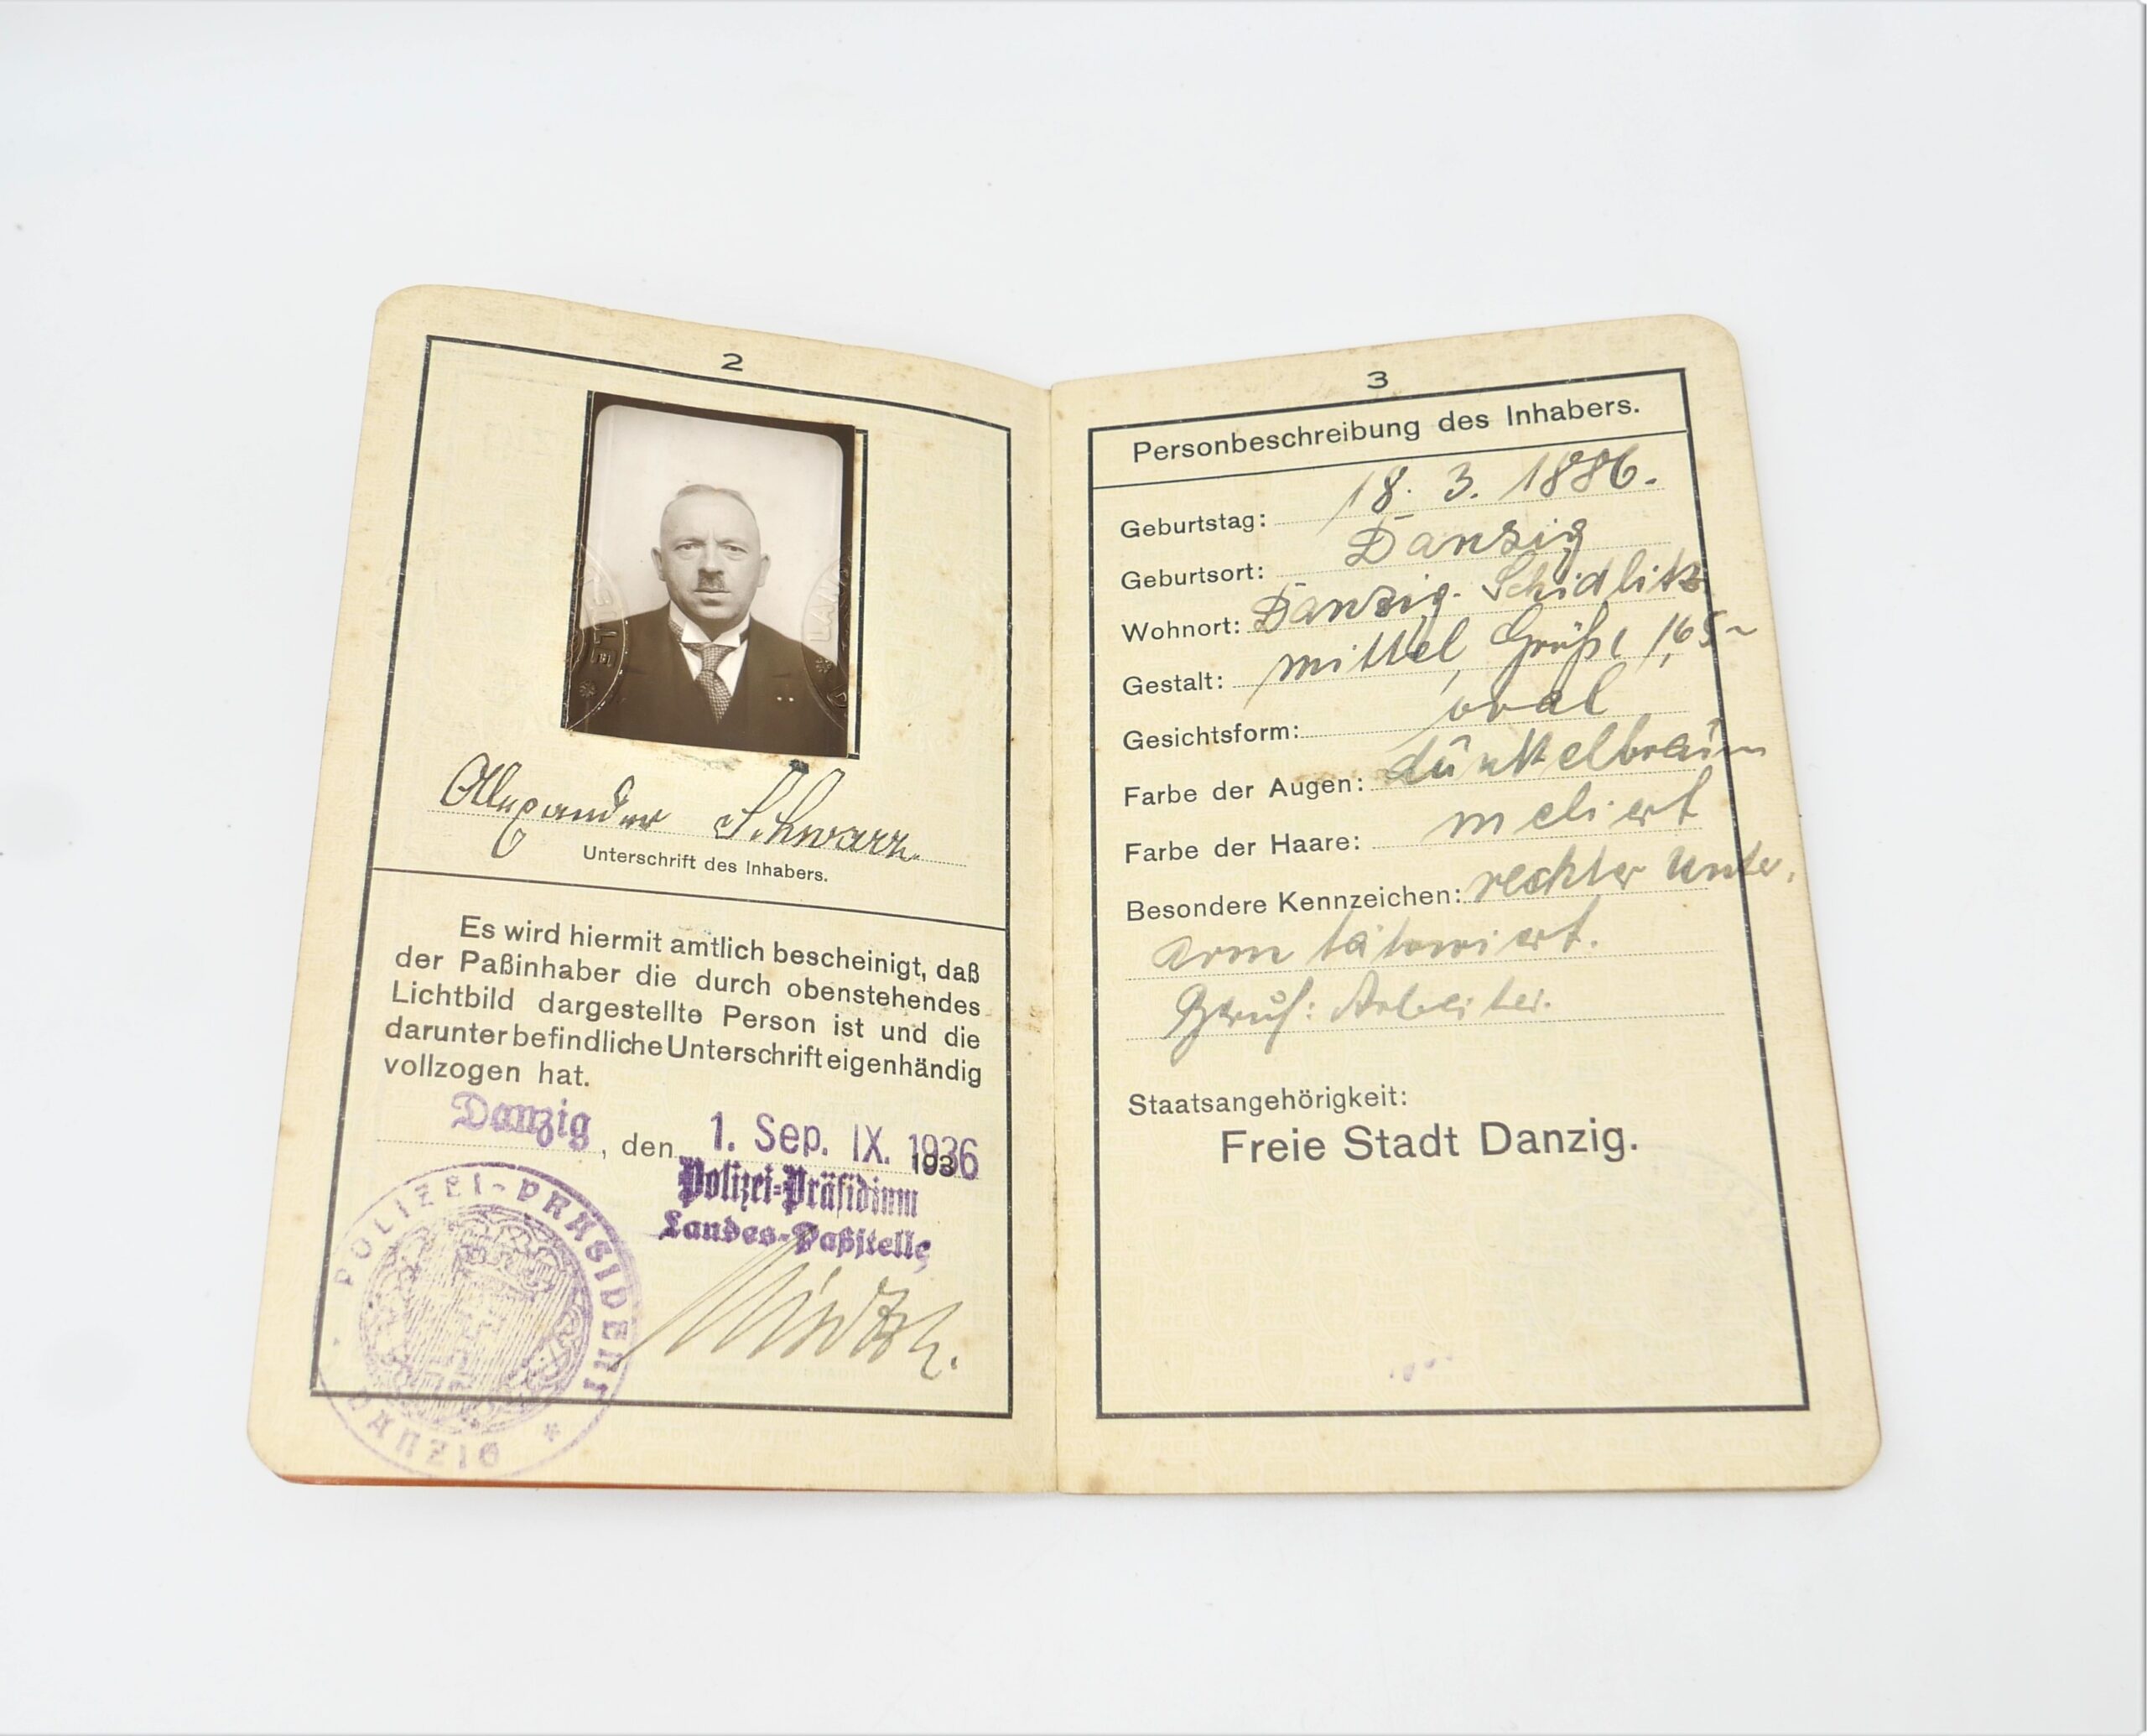 2
Alexander Schwarz.
Unterschrift des Inhabers.
Es wird hiermit amtlich bescheinigt, daß
der Paßinhaber die durch obenstehendes
Lichtbild dargestellte Person ist und die
darunter befindliche Unterschrift eigenhändig
vollzogen hat.
Danzig, den 1. Sep. IX. 1936
193
Polizei-Präsidium
Landes-Paßstelle
POLIZEI-PRÄSIDENT
DANZIG
3
Personbeschreibung des Inhabers.
Geburtstag: 18. 3. 1886.
Geburtsort: Danzig
Wohnort: Danzig-Schidlitz
Gestalt: mittel, Größe 1,65
Gesichtsform: oval
Farbe der Augen: dunkelbraun
Farbe der Haare: meliert
Besondere Kennzeichen: rechter Unter-
arm tätowiert.
Beruf: Arbeiter.
Staatsangehörigkeit:
Freie Stadt Danzig.